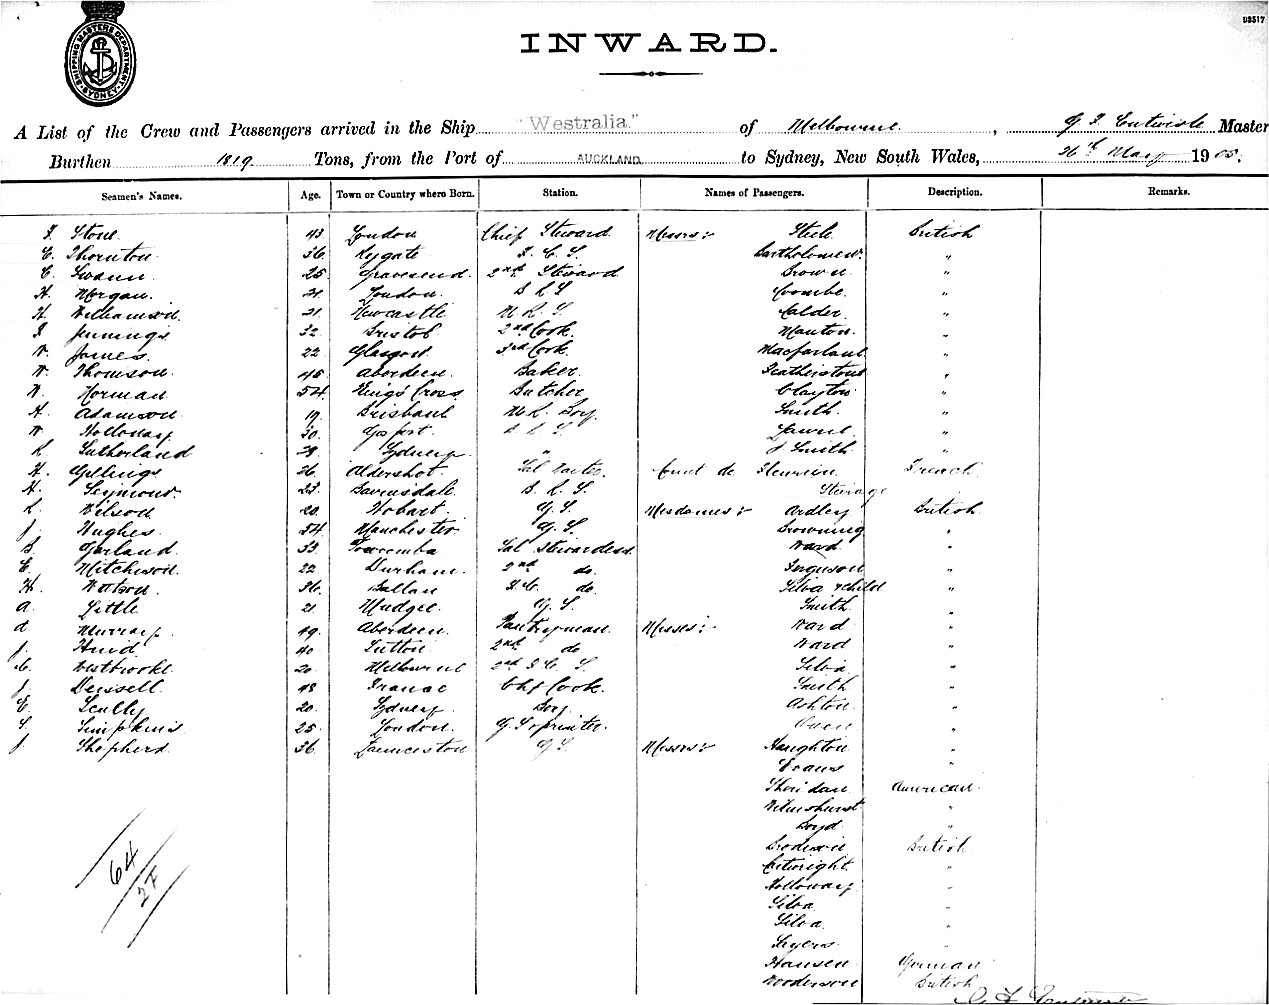 SHIPPING MASTERS DEPARTMENT. SYDNEY.
93517
INWARD.
A List of the Crew and Passengers arrived in the Ship "Westralia" of Melbourne, Master
Burthen 1819 Tons, from the Port of AUCKLAND to Sydney, New South Wales, 26th May 1905.
Seamen's Names. Age. Town or Country where Born. Station. Names of Passengers. Description. Remarks.
Stone 43 London Chief Steward Messrs:- Steele British
E. Thornton 36 Rygate F. C. S. Bartholomew "
C. Swann 25 Gravesend 2nd Steward Brown "
H. Morgan. 21. London. Coombe. "
H. Williamson. 21. Newcastle Calder "
Jennings 32 Bristol 2nd Cook. Manton. "
W. James 22 Glasgow 3rd Cook. Macfarland "
W. Thomson. 45 Aberdeen. Baker. Featherstone "
W. Norman 54 King's Cross Butcher Clayton "
H. Adamson 19 Brisbane M.R. Boy Smith. "
W. Holloway 30. Gosport. "
R. Sutherland Sydney " J Smith "
H. Gellings 26 Aldershot. Sal Waiter Count de Fleurieu French
H. Seymour. 23. Bairnsdale. B. R. S. Steerage
L. Wilson 20 Hobart. G.S. Mesdames:- Ardley British
J. Hughes 54 Manchester G.S. Browning "
Garland 33 Towoomba Sal Stewardess Ward "
E. Mitchison. 22 Durham. 2nd do. Ferguson "
H. Watson 36. Ballan F.C. do Silva & child "
A. Little 21 Mudgee G.S. Smith "
A. Murray 49 Aberdeen. Pantryman. Misses:- Ward "
J. Hurd 40 Sutton 2nd do Ward "
Westbrooke 20 Melbourne 2nd F C S. Silva "
J. Deissell 48 France Chf Cook. Smith "
E. Scully 20 Sydney Boy Ashton "
S. Simpkins 25 London. Owen "
J. Shepherd 36 Launceston G.S. Messrs:- Haughton "
Evans "
Sheridan American
Wilmshurst "
Boyd "
Broderick British
Cartwright "
Holloway "
Silva "
Silva "
Sayers "
Hansen German
Wooderson British
64
27